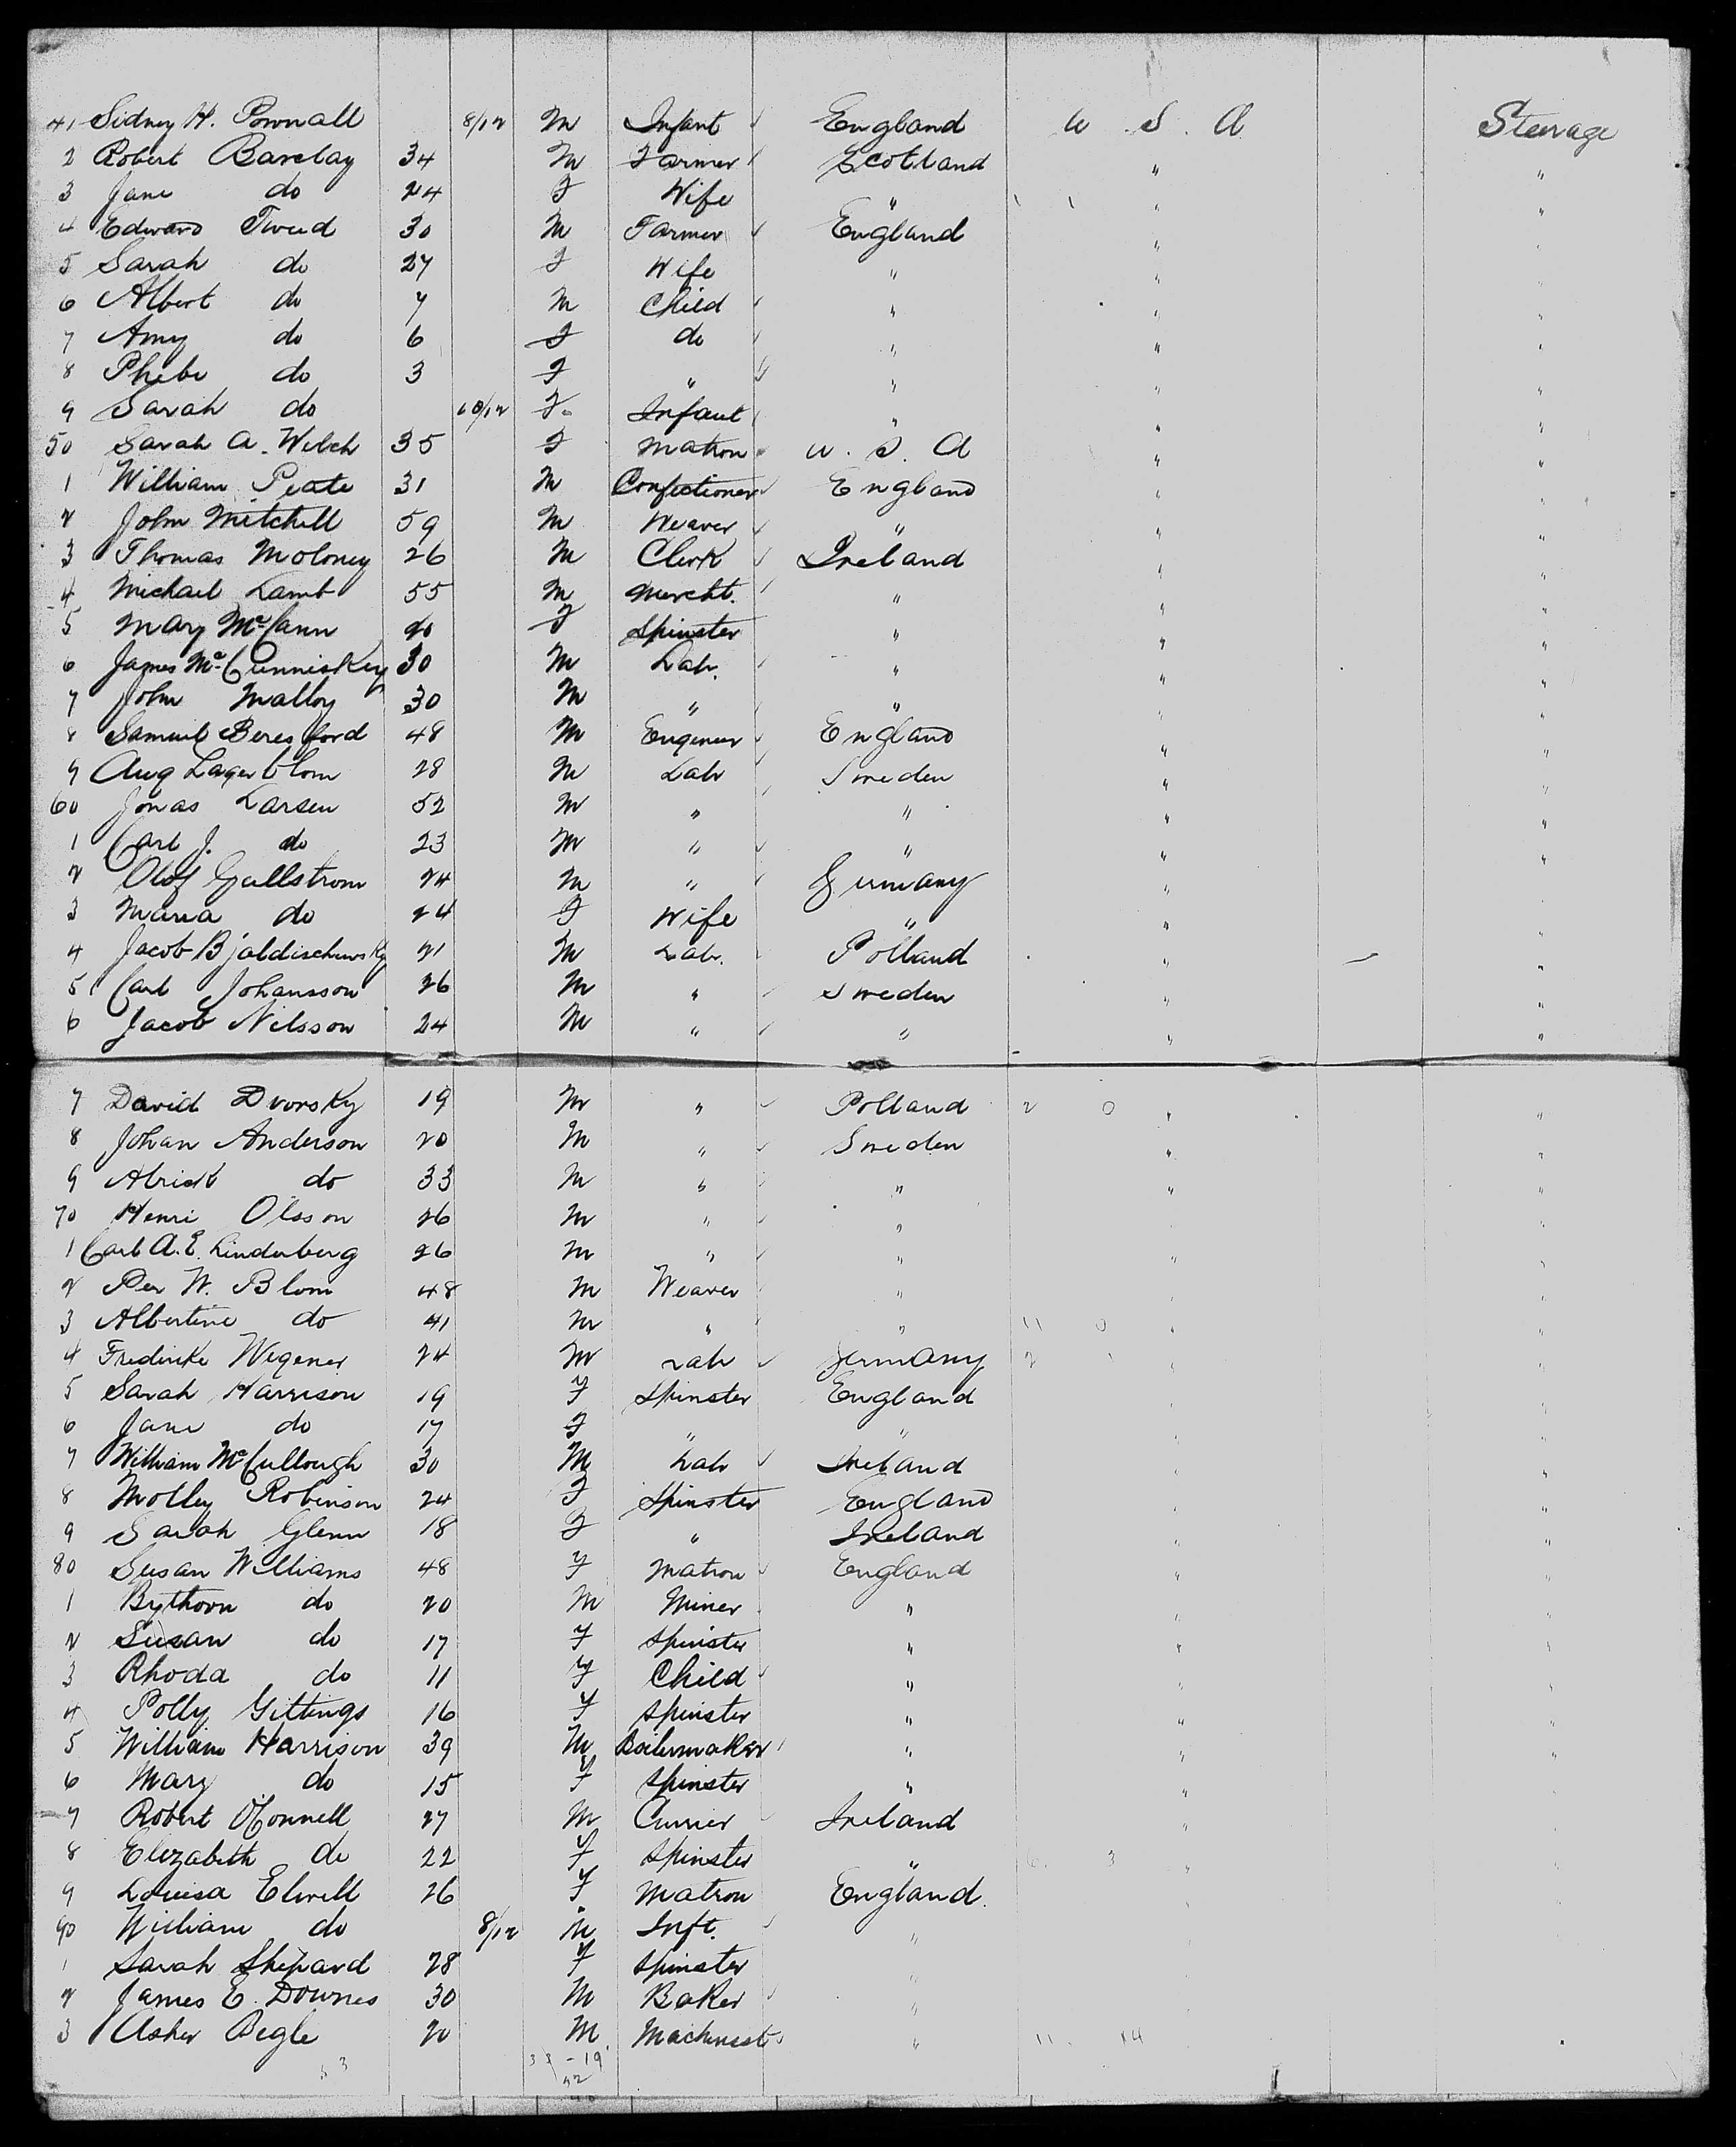 41 Sidney H. Pownall 8/12 M Infant England U.S.A Steerage
2 Robert Barclay 34 M Farmer Scotland " "
3 Jane do 24 F Wife " " "
4 Edward Tweed 30 M Farmer England " "
5 Sarah do 27 F Wife " " "
6 Albert do 7 M Child " " "
7 Amy do 6 F do " " "
8 Phebe do 3 F " " " "
9 Sarah do 10/12 F Infant " " "
50 Sarah A. Welch 35 F Matron U.S.A " "
1 William Peate 31 M Confectioner England " "
2 John Mitchell 59 M Weaver " " "
3 Thomas Moloney 26 M Clerk Ireland " "
4 Michael Lamb 55 M Mercht. " " "
5 Mary McCann 20 F Spinster " " "
6 James McCunniskey 30 M Lab. " " "
7 John Malloy 30 M " " " "
8 Samuel Beresford 48 M Engeneer England " "
9 Aug Lagerblom 28 M Lab Sweden " "
60 Jonas Larsen 52 M " " " "
1 Carl J. do 23 M " " " "
2 Olof Gullstrom 24 M " Germany " "
3 Maria do 24 F Wife " " "
4 Jacob 21 M Lab. Polland " "
5 Carl Johansson 26 M " Sweden " "
6 Jacob Nilsson 24 M " " " "
7 David Dvorsky 19 M " Polland 2 0 " "
8 Johan Anderson 20 M " Sweden " "
9 do 33 M " " " "
70 Henri Olsson 26 M " " " "
1 Carl A. E. Linderberg 26 M " " " "
2 Per W. Blom 48 M Weaver " " "
3 Albertine do 41 M " " 11 0 " "
4 Fredericke Wegener 24 M Lab Germany 2 " "
5 Sarah Harrison 19 F Spinster England " "
6 Jane do 17 F " " " "
7 William McCullough 30 M Lab Ireland " "
8 Molley Robinson 24 F Spinster England " "
9 Sarah Glenn 18 F " Ireland " "
80 Susan Williams 48 F Matron England " "
1 Bythorn do 20 M Miner " " "
2 Susan do 17 F Spinster " " "
3 Rhoda do 11 F Child " " "
4 Polly Gittings 16 F Spinster " " "
5 William Harrison 39 M Boilermaker " " "
6 Mary do 15 F Spinster " "
7 Robert O'Connell 27 M Currier Ireland "
8 Elizabeth do 22 F Spinster " 6. 3 "
9 Louisa Elwell 26 F Matron England.
90 William do 8/12 M Inft. "
1 Sarah Shepard 28 F Spinster "
2 James E. Downes 30 M Baker "
3 Asher Begle 20 M Machinest " 11. 14
53 33 - 19
52